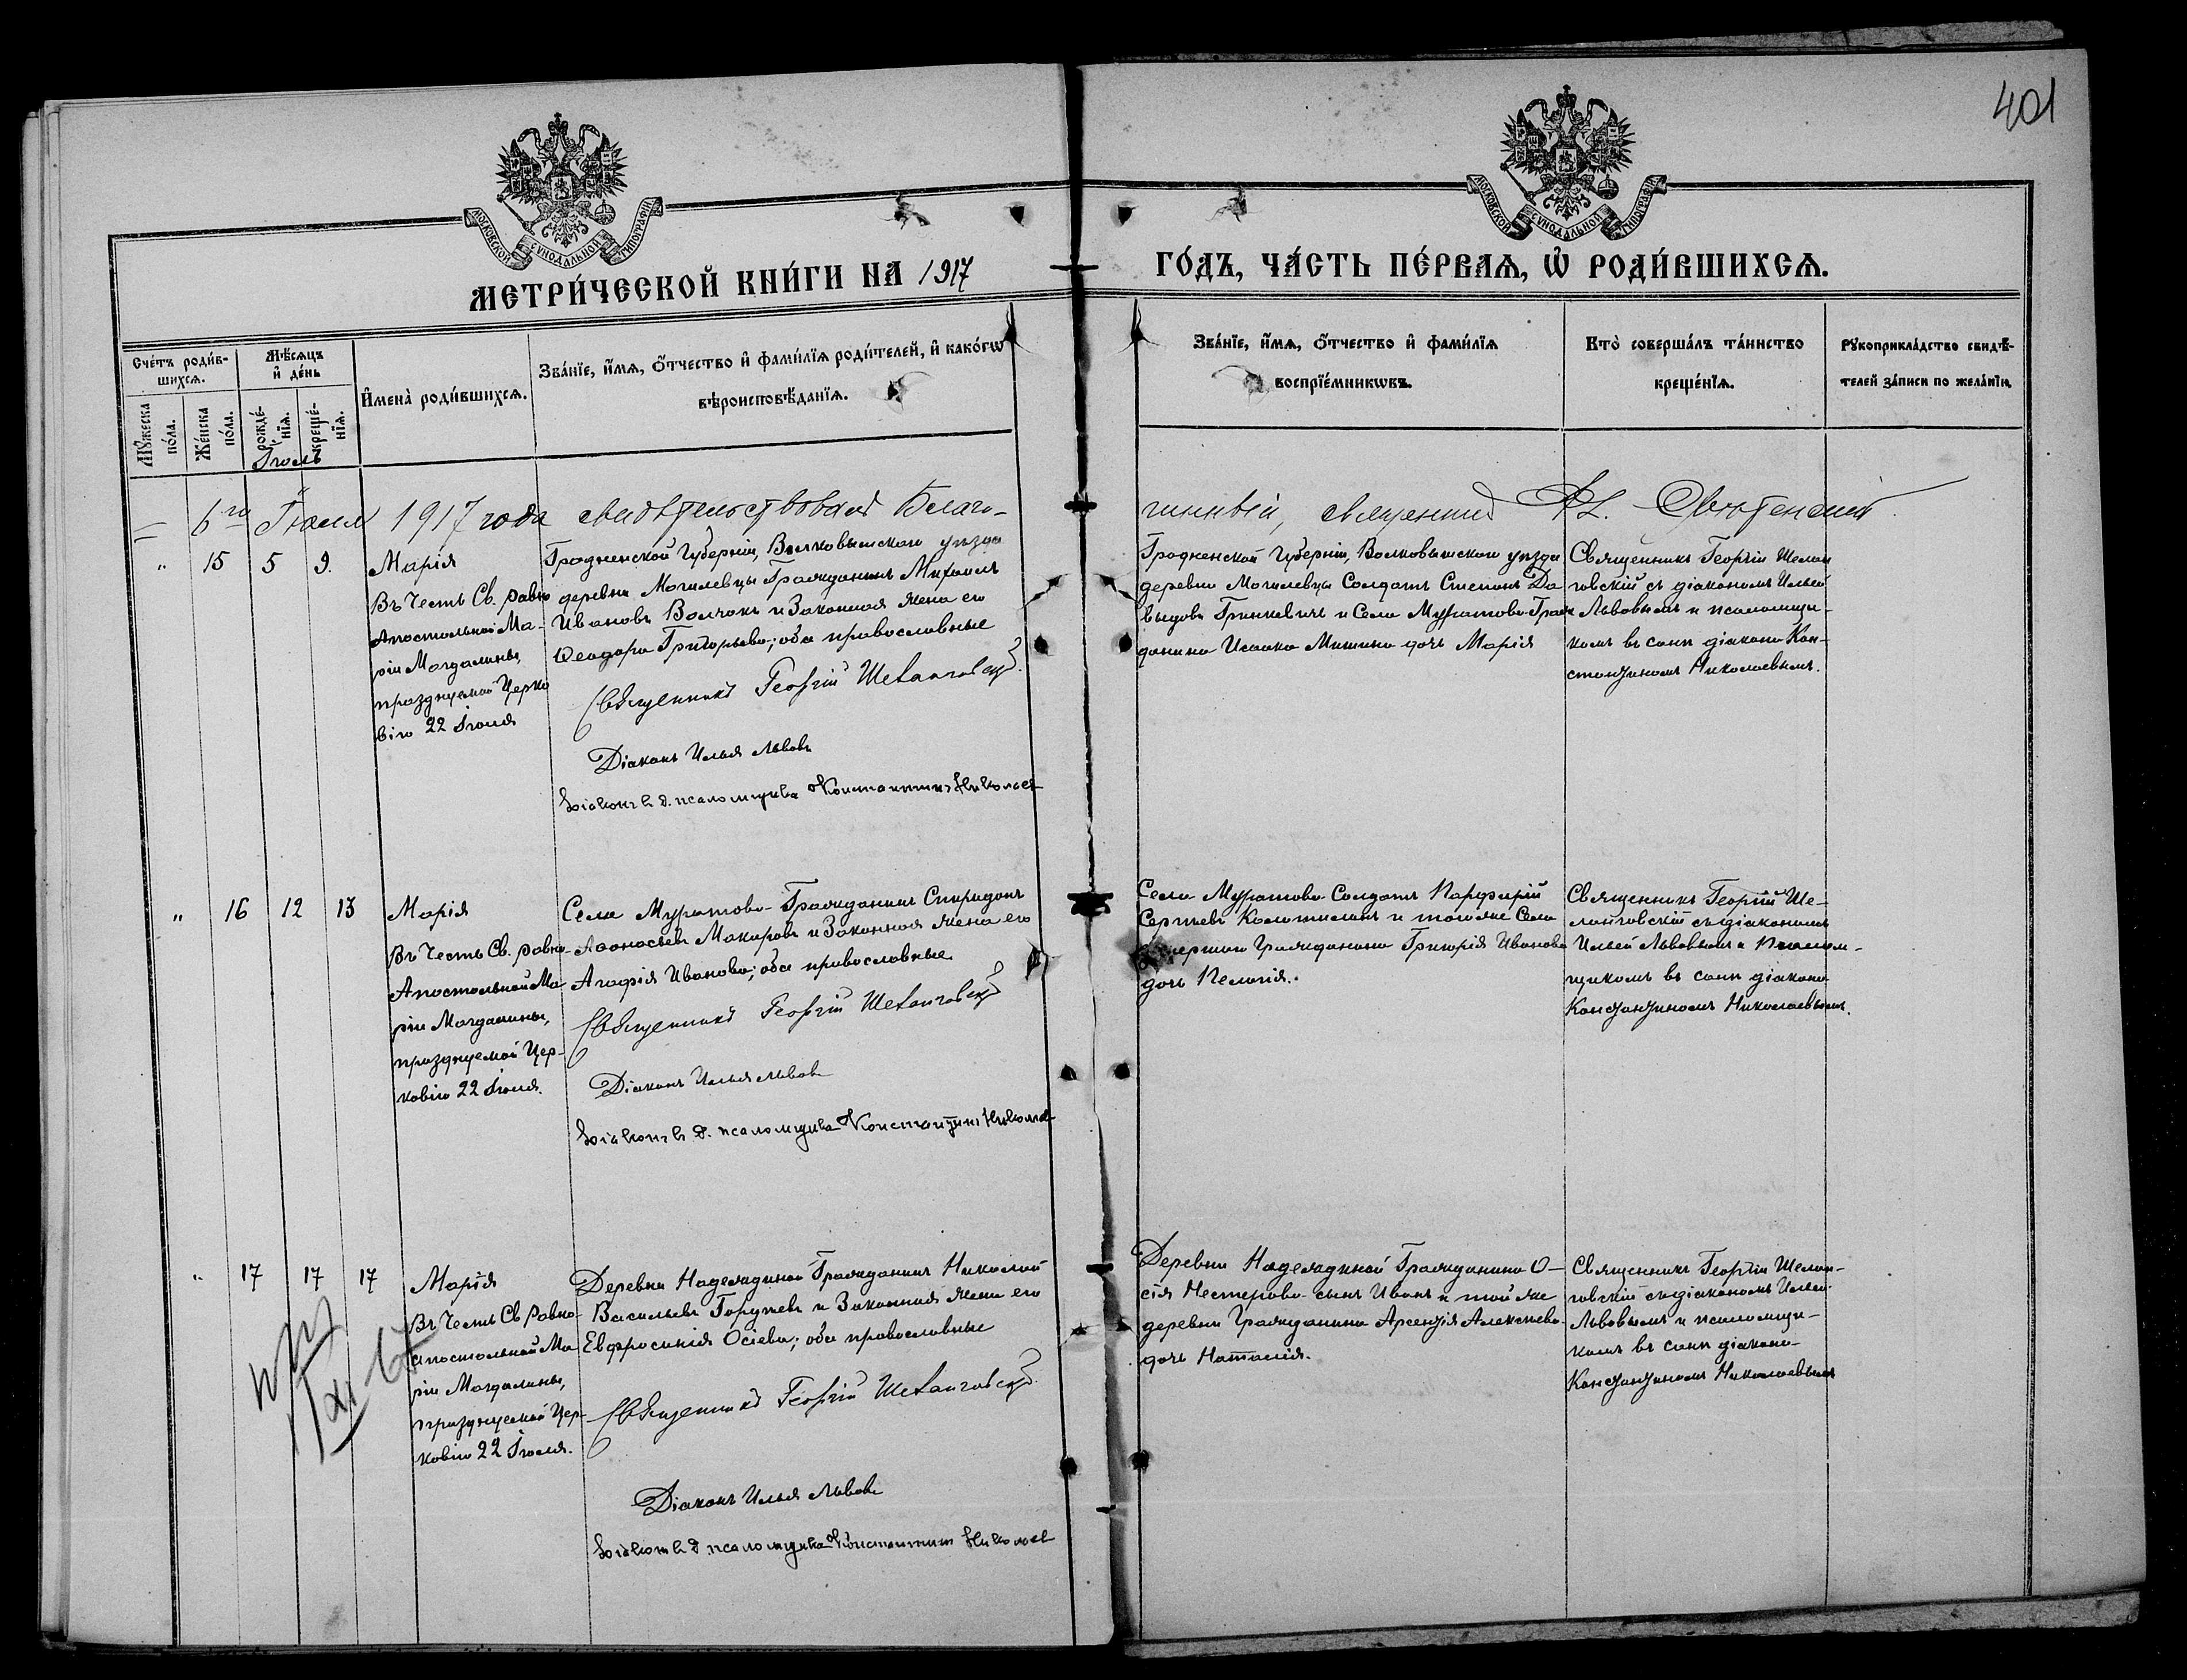 401
МОСКОВСКОЙ СѴНОДАЛЬНОЙ ТИПОГРАФІИ
МОСКОВСКОЙ СѴНОДАЛЬНОЙ ТИПОГРАФІИ
МЕТРИ́ЧЕСКОЙ КНИ́ГИ НА 1917
ГО́ДЪ, ЧА́СТЬ ПЕ́РВАѦ, Ѡ҆ РОДИ́ВШИХСѦ.
Сче́тъ роди́в-
шихсѧ.
Мѣ́сѧцъ
и҆ де́нь
Мꙋ́жеска
по́ла.
Же́нска
по́ла.
рожде́-
нїѧ.
креще́-
нїѧ.
И҆мена̀ роди́вшихсѧ.
Зва́нїе, и҆́мѧ, ѻ҆́тчество и҆ фами́лїѧ роди́телей, и҆ како́гѡ
вѣроисповѣ́данїѧ.
Зва́нїе, и҆́мѧ, ѻ҆́тчество и҆ фами́лїѧ
воспрїе́мникѡвъ.
Кто̀ соверша́лъ та́инство
креще́нїѧ.
Рꙋкоприкла́дство свидѣ́-
телей за́писи по жела́нїю.
Іюль
6го Іюля 1917 года свидѣтельствовалъ Благо-
чинный, священникъ
" 15 5 9.
Марія
Въ Честь Св. равно
Апостольной Ма-
ріи Магдалины,
празднуемой Церко
вію 22 Іюля
Гродненской Губерніи, Волковышскаго уѣзда
деревни Могилевцы Гражданинъ Михаилъ
Ивановъ Волчокъ и Законная жена его
Ѳеодора Григорьева; оба православные
Священникъ Георгій Шеланговскій
Діаконъ Илья Львовъ
Діаконъ в д. псаломщика Константинъ Николаев
Гродненской Губерніи, Волковышскаго уѣзда
деревни Могилевцы Солдатъ Степанъ Да
выдовъ Гринкевичъ и Села Муратова Граж
данина Исаака Мишина дочь Марія
Священникъ Георгій Шелан
говскій съ діакономъ Ильей
Львовымъ и псаломщи-
комъ въ санѣ діакона Кон-
стантиномъ Николаевымъ.
" 16 12 13
Марія
Въ Честь Св. равно-
Апостольной Ма
ріи Магдалины,
празднуемой Цер-
ковію 22 Іюля.
Села Муратова Гражданинъ Спиридонъ
Аѳонасьевъ Макаровъ и Законная жена его
Агафія Иванова; оба православные
Священникъ Георгій Шеланговскій
Діаконъ Илья Львовъ
Діаконъ в д. псаломщика Константинъ Николаев
Села Муратова Солдатъ Парфирій
Сергѣевъ и того же Села
Гражданина Григорія Иванова
дочь Пелагія.
Священникъ Георгій Ше-
ланговскій съ діакономъ
Ильей Львовымъ и Псалом-
щикомъ въ санѣ діакона
Константиномъ Николаевымъ.
" 17 17 17
Марія
Въ Честь Св Равно-
апостольной Ма
ріи Магдалины,
празднуемой Цер-
ковію 22 Іюля.
Деревни Надеждиной Гражданинъ Николай
Васильевъ Горунъ и Законная жена его
Евфросинія Осіева; оба православные
Священникъ Георгій Шеланговскій
Діаконъ Илья Львовъ
Діаконъ в д. псаломщика Константинъ Николаев
Деревни Надеждиной Гражданина О-
сія Нестерова сынъ Иванъ и той же
деревни Гражданина Арсентія Алексѣева
дочь Наталія.
Священникъ Георгій Шелан-
говскій съ діакономъ Ильей
Львовымъ и псаломщи-
комъ въ санѣ діакона
Константиномъ Николаевымъ